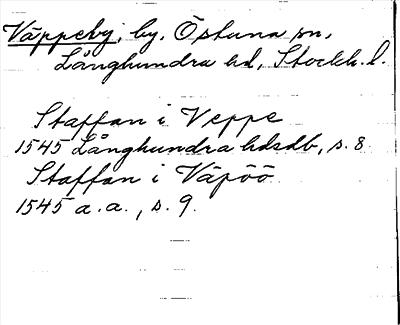 Väppeby, by, Östuna sn,
Långhundra hd, Stockh. l.
Staffan i Veppe
1545 Långhundra hdsdb, s. 8.
Staffan i Väpöö
1545 a. a., s. 9.